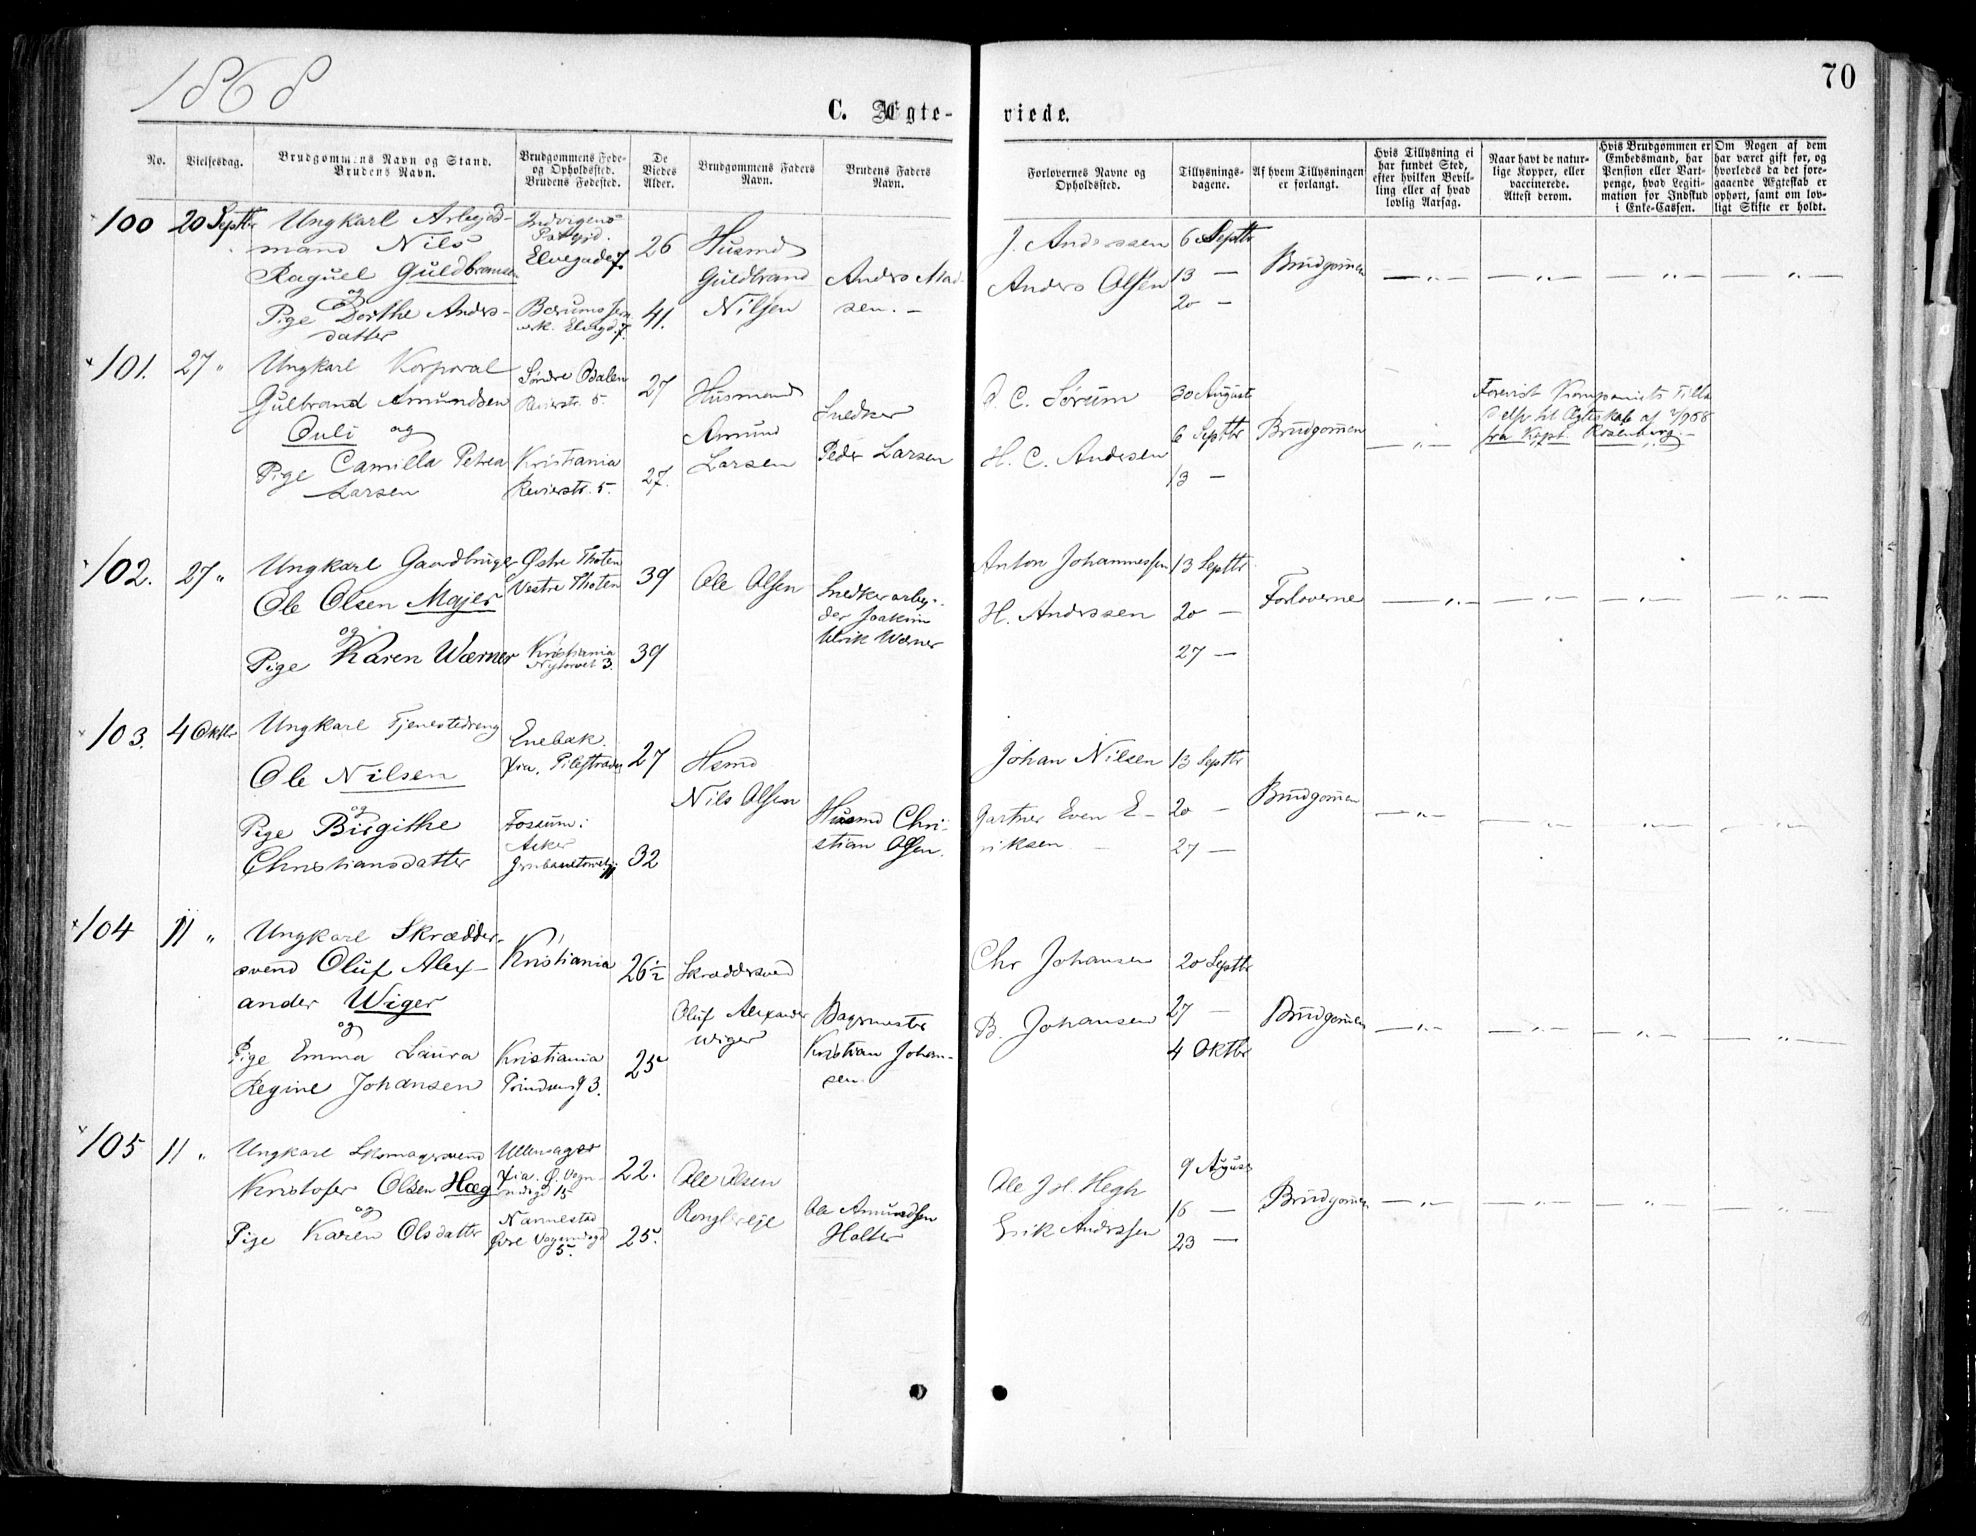 1868
70
C. Ægte-
viede.
No.
Vielsesdag.
Brudgommens Navn og Stand.
Brudens Navn.
Brudgommens Føde-
og Opholdssted.
Brudens Fødested.
De
Viedes
Alder.
Brudgommens Faders
Navn.
Brudens Faders
Navn.
Forlovernes Navne og
Opholdssted.
Tillysnings-
dagene.
Af hvem Tillysningen
er forlangt.
Hvis Tillysning ei
har fundet Sted,
efter hvilken Bevil-
ling eller af hvad
lovlig Aarsag.
Naar havt de natur-
lige Kopper, eller
vaccinerede.
Attest derom.
Hvis Brudgommen er
Embedsmand, har
Pension eller Vart-
penge, hvad Legiti-
mation for Indskud
i Enke-Cassen.
Om Nogen af dem
har været gift før, og
hvorledes da det fore-
gaaende Ægteskab er
ophørt, samt om lov-
ligt Skifte er holdt.
100
20 Septbr
Ungkarl Arbejds-
mand Nils
Raguel Guldbransen
og
Pige Dorthe Anders-
datter
Elvegade 7.
Bærums Jern
verk. Elvegd. 7.
26
41.
Husmd
Guldbrand
Nilsen
Anders Mad-
sen. –
J. Anderssen
Anders Olsen
6 Septbr
13 —
20 –
Brudgommen
— „ —
— „ —
— „ —
— „ —
101.
27 „
Ungkarl Korporal
Gulbrand Amundsen
Ouli og
Pige Camilla Petrea
Larsen
Søndre
Revierstr. 5.
Kristiania
Revierstr. 5.
27
27.
Husmand
Amund
Larsen
Snedker
Peder Larsen
C. Sørum
H. C. Andersen
30 August
6 Septbr
13 –
Brudgommen
— „ —
Forevist Kompaniets Tilla
til Ægteskab af
fra Kapt Rosenberg –
102.
27 „
Ungkarl Gaardbruger
Ole Olsen Majer
og
Pige Karen Wærner
Østre Thoten
Vestre Thoten
Kristiania
Nytorvet 3.
39
39
Ole Olsen
Snedkerarbej-
der Joakim
Ulrik Wærner
Anton Johannessen
H. Anderssen
13 Septbr
20 –
27 –
Forloverne
— „ —
— „ —
— „ —
— „ —
103.
4 Oktbr
Ungkarl Tjenestedreng
Ole Nilsen
og
Pige Birgithe
Christiansdatter
Enebak.
Xia. Pilestrædet
Fossum i
Asker
27
32
Hsmd
Nils Olsen
Husmd Chri-
stian Olsen.
Johan Nilsen
Gartner Even E-
riksen
13 Septbr
20 –
27 –
Brudgommen
— „ —
— „ —
— „ —
— „ —
104
11 „
Ungkarl Skrædder-
svend Oluf Alex-
ander Wiger
og
Pige Emma Laura
Regine Johansen
Kristiania
Kristiania
Prindsensg 3.
26 ½
25
Skræddersvend
Oluf Alexander
Wiger
Bagermester
Kristian Johan-
sen.
Chr Johansen
B. Johansen
20 Septbr
27 –
4 Oktbr
Brudgommen
— „ —
— „ —
— „ —
— „ —
105
11 „
Ungkarl
Kristofer Olsen Hæg
og
Pige Karen Olsdatter
Ullensager
Xia. Ø. Vogn-
mdsgd 15
Nannestad
Øvre Vognmdsgd
5.
22.
25.
Ole Olsen
Ole Amundsen
Holter
Ole Joh. Hegh
Erik Anderssen
9 August
16 –
23 –
Brudgommen
— „ —
— „ —
— „ —
— „ —